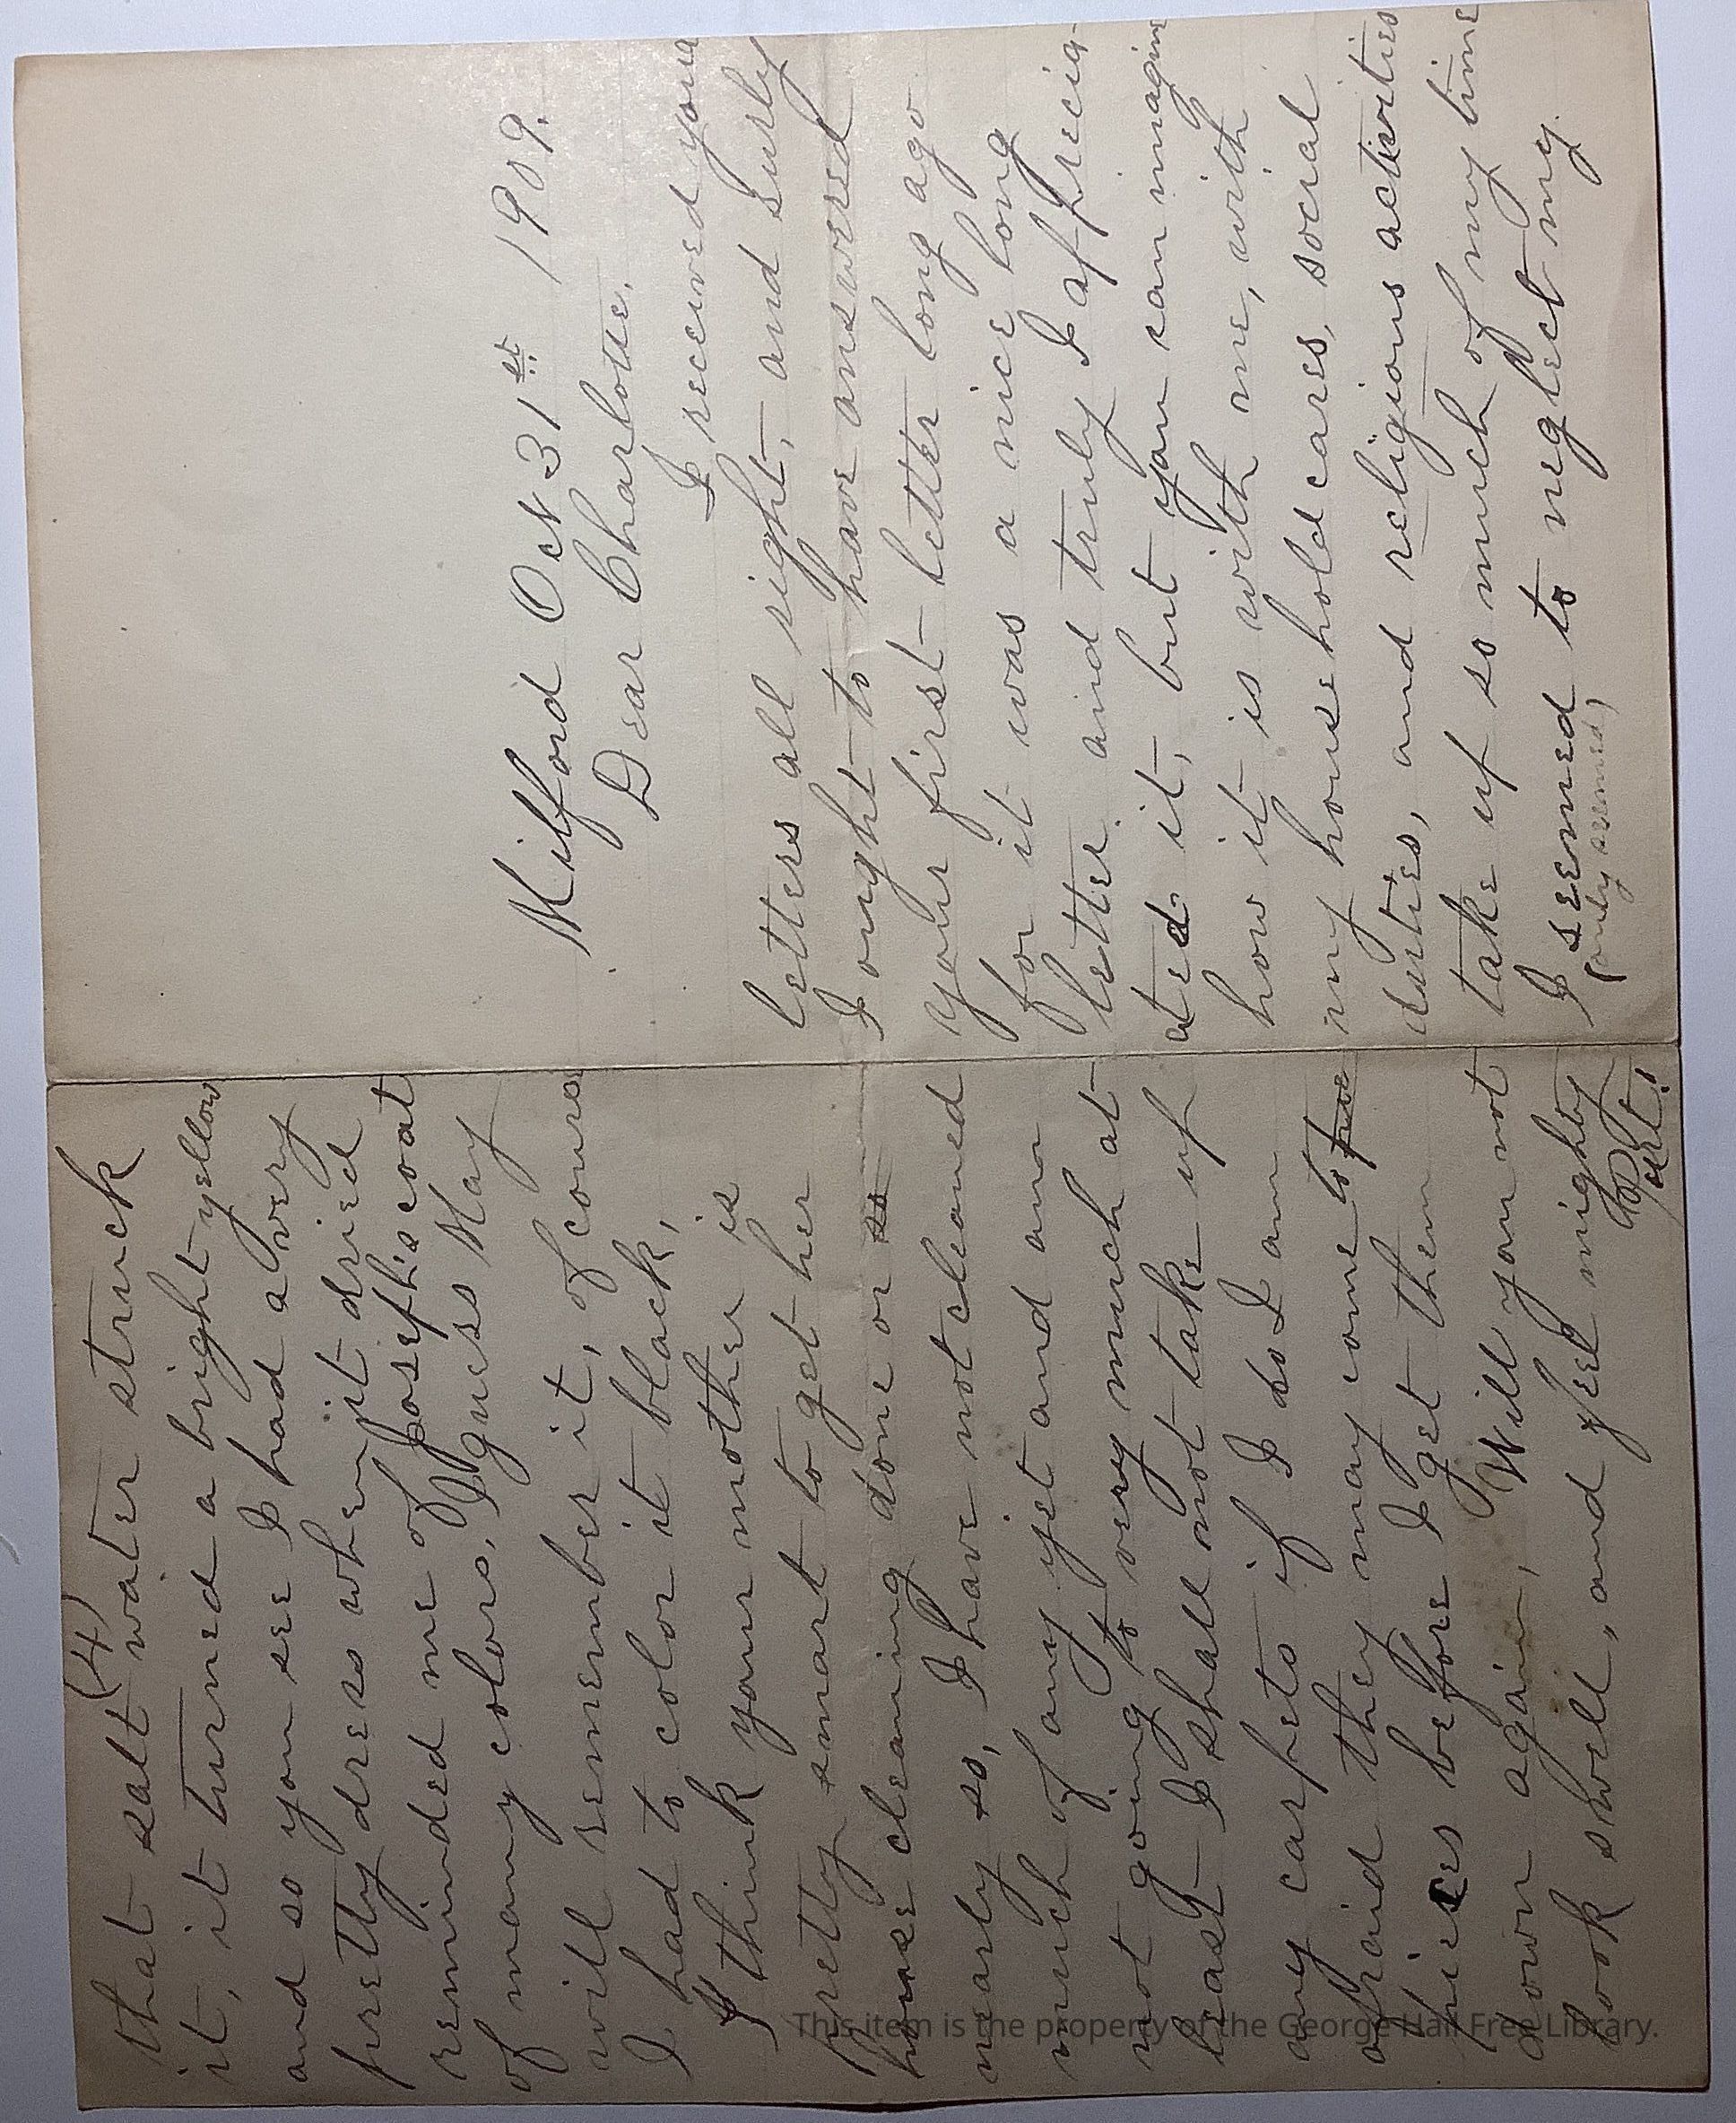 Milford Oct 31st 1909.
Dear Charlotte.
I received your
letters all right, and surly
I ought to have answered
your first letter long ago
for it was a nice long
letter and truly I apprecia-
ted it, but you can imagine
how it is with me, with
my household cares, social
duties, and religious activities
take up so much of my time
I seemed to neglect my
(only seemed)
(4)
that salt water struck
it, it turned a bright yellow
and so you see I had a very
pretty dress when it dried
reminded me of Joseph's coat
of many colors, I guess May
will remember it, of course
I had to color it black,
I think your mother is
pretty smart to get her
house cleaning done or so
nearly so, I have not cleaned
much of any yet and am
not going to very much at
least I shall not take up
any carpets if I do I am
afraid they may come to
pieces before I get them
down again, Will you not
look swell, and feel mighty
Pert!
This item is the property of the George Hail Free Library.